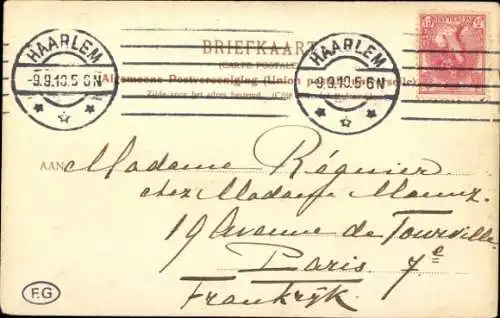 BRIEFKAART
(CARTE POSTALE)
Algemeene Postvereeniging (Union postale universelle)
Zijde voor het adres bestemd.
HAARLEM
-9.9.10.5-6N
HAARLEM
-9.9.10.5-6N
AAN Madame Régnier
chez Madame
19 Avenue de Tourville
Paris 7e
Frankrijk
F.G